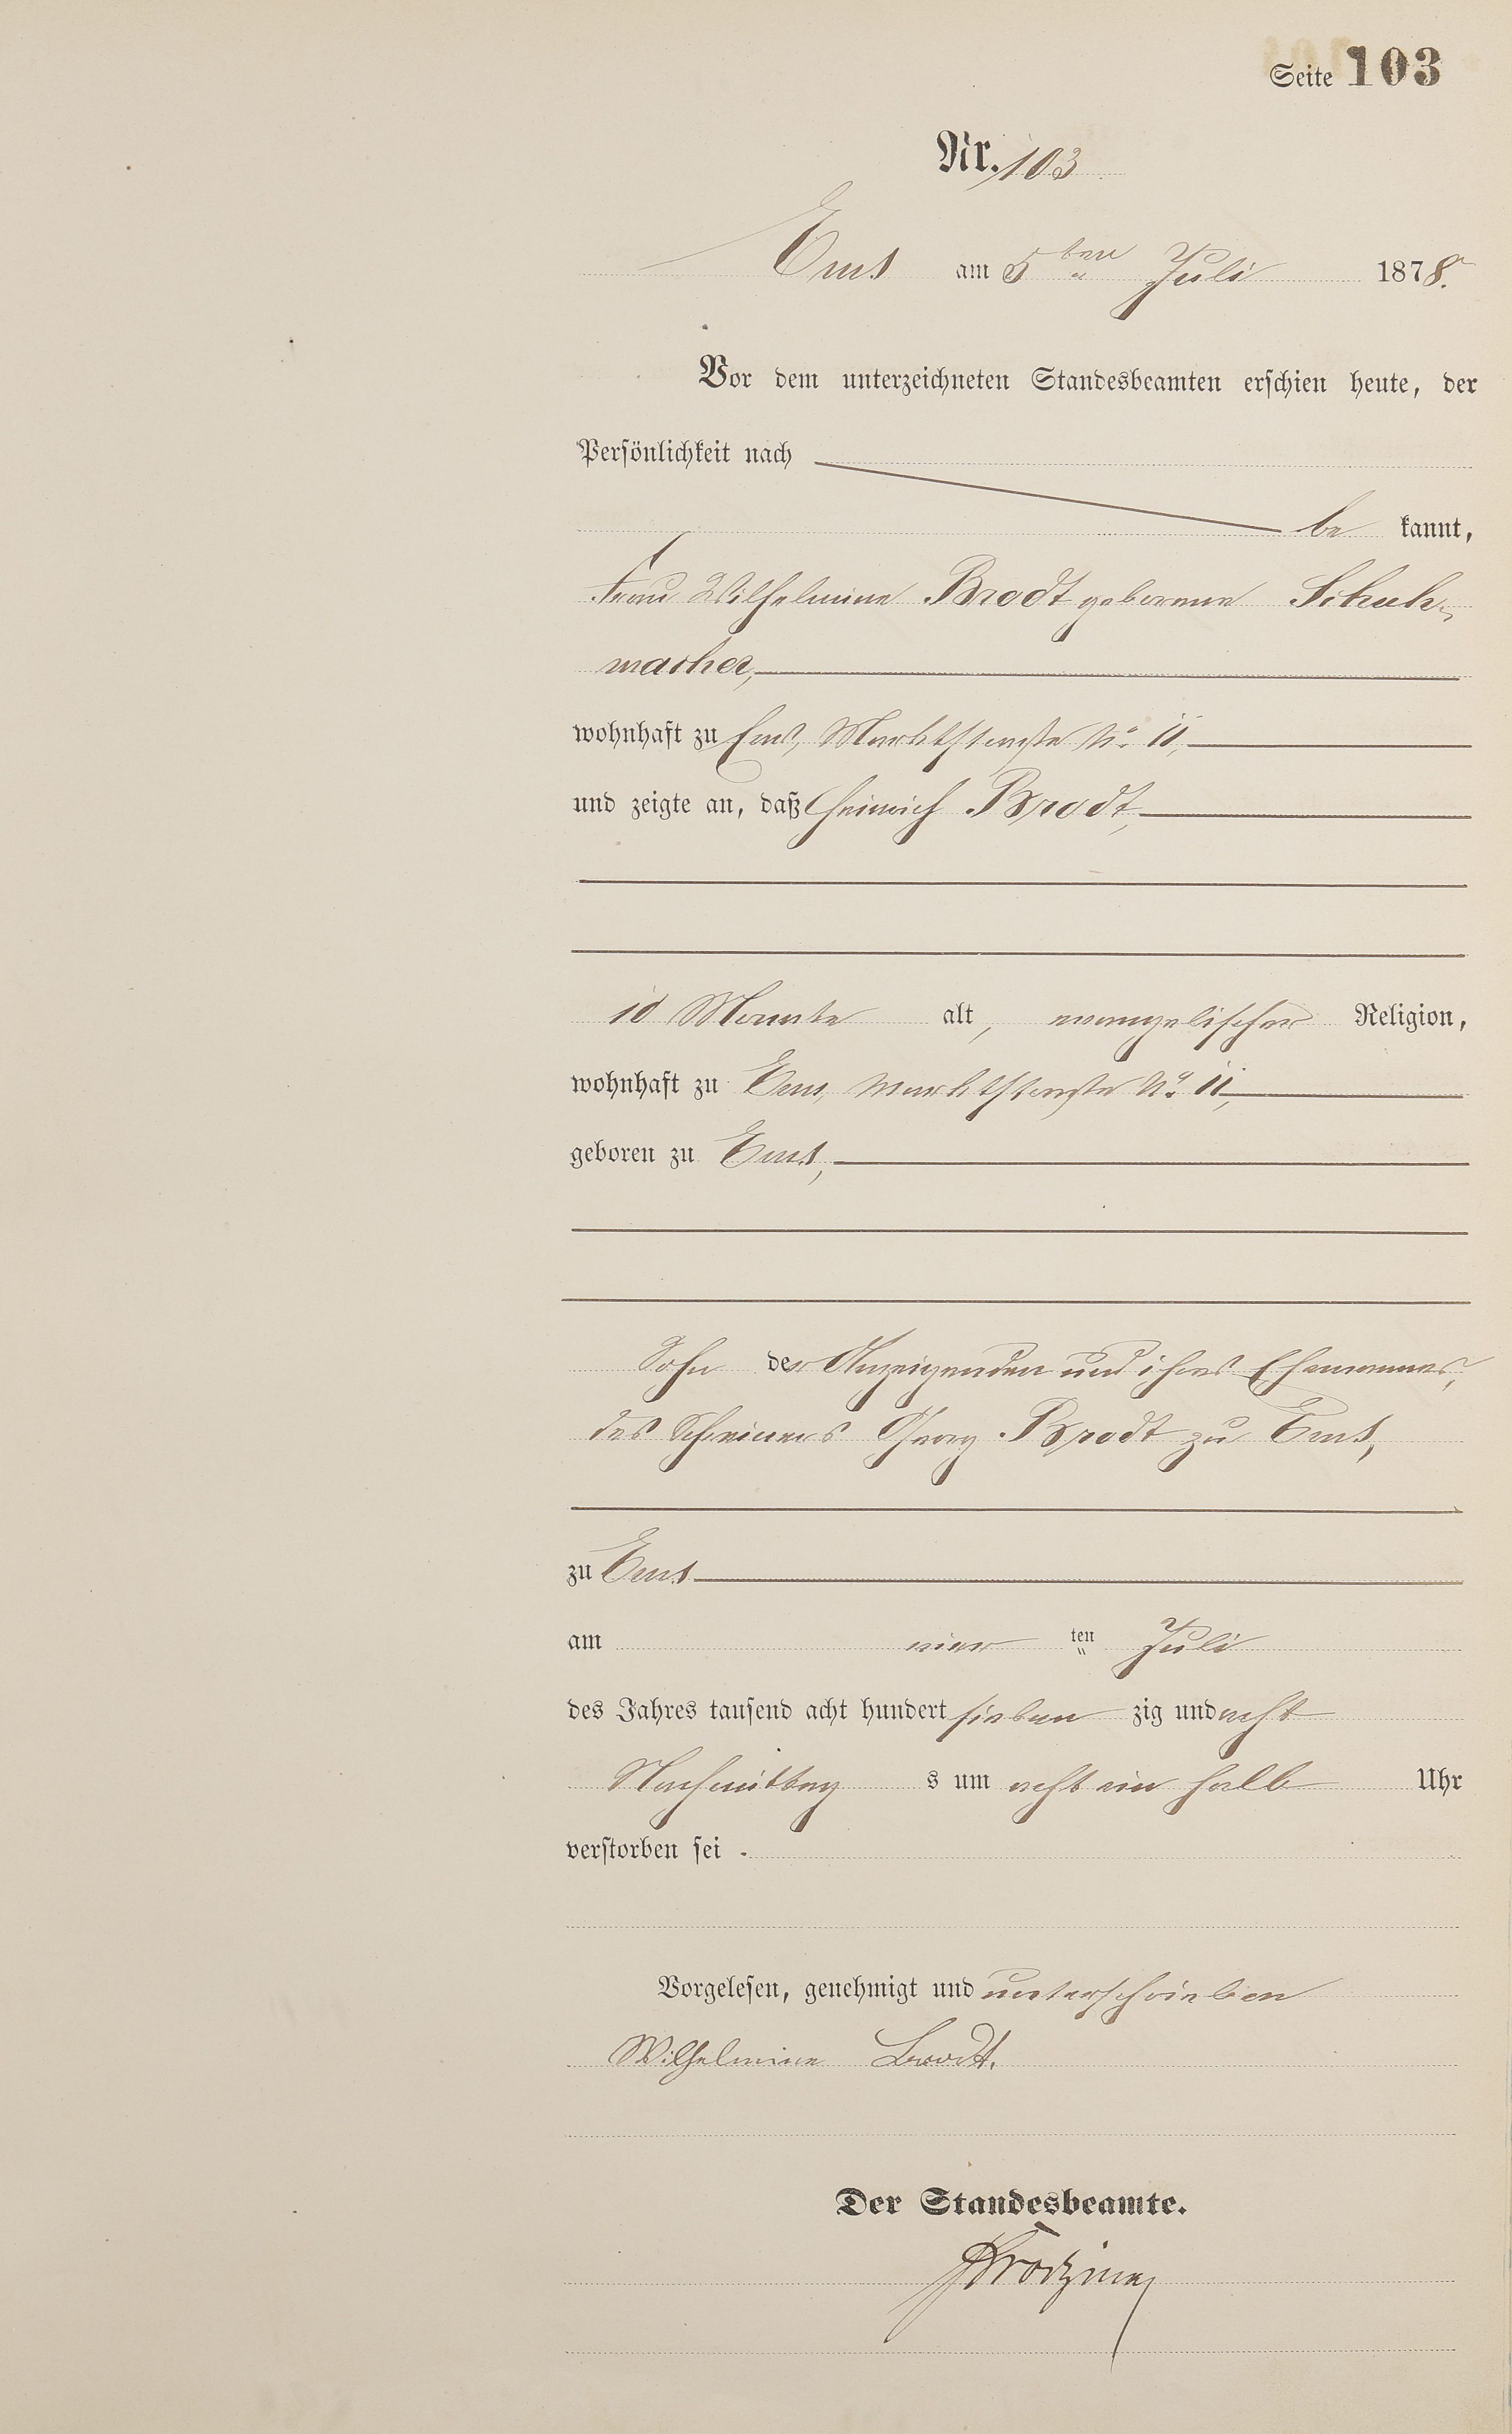 Seite 103
Nr. 103
Ems am 5ten Juli 1878.
Vor dem unterzeichneten Standesbeamten erschien heute, der
Persönlichkeit nach
be kannt,
Frau Wilhelmine Brodt geborene Schuh-
macher,
wohnhaft zu Ems, Marktstraße No. 11,
und zeigte an, daß Heinrich Brodt,
10 Monate alt, evangelischer Religion,
wohnhaft zu Ems, Marktstraße No. 11,
geboren zu Ems,
Sohn der Anzeigenden und ihres Ehemannes,
des Schreiners Georg Brodt zu Ems,
zu Ems
am vier ten Juli
des Jahres tausend acht hundert sieben zig und acht
Nachmittag s um acht ein halb Uhr
verstorben sei .
Vorgelesen, genehmigt und unterschrieben
Wilhelmine Brodt.
Der Standesbeamte.